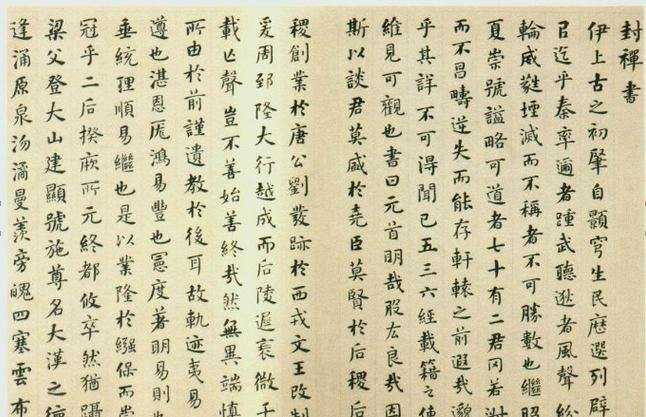 封禪書
伊上古之初肇自顥穹生民歷選列辟
㠯迄乎秦率邇者踵武聽逖者風聲紛
輪威蕤堙滅而不稱者不可勝數也繼昭
夏崇號諡略可道者七十有二君罔若
而不昌疇逆失而能存軒轅之前遐哉邈
乎其詳不可得聞已五三六經載籍之傳
維見可觀也書曰元首明哉股厷良哉因
斯以談君莫盛於堯臣莫賢於后稷后
稷創業於唐公劉發跡於西戎文王改制
爰周郅隆大行越成而后陵遲衰微千
載亡聲豈不善始善終哉然無異端慎
所由於前謹遺教於後耳故軌迹夷易
遵也湛恩厖鴻易豐也憲度著明易則也
垂統理順易繼也是以業隆於繦保而崇
冠乎二后揆厥所元終都攸卒然猶躡
梁父登大山建顯號施尊名大漢之德
逢涌原泉沕潏曼羡旁魄四塞雲布